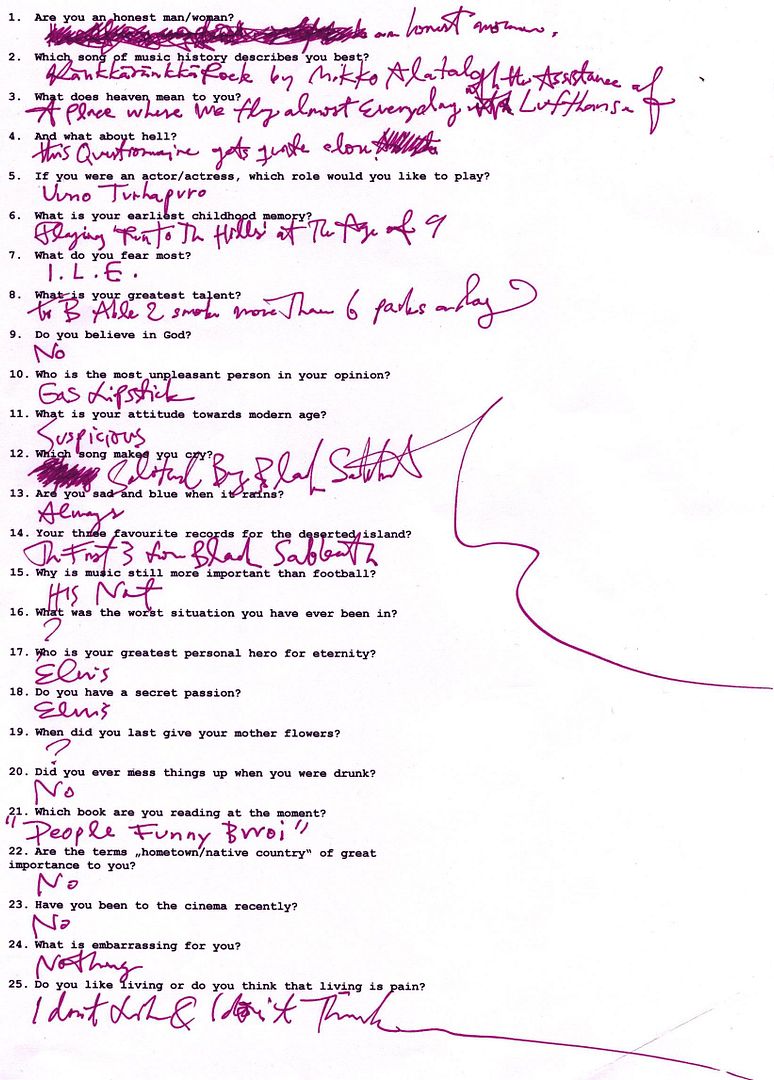 1. Are you an honest man/woman?
an honest woman.
2. Which song of music history describes you best?
Ränkkäränkkä Rock by Mikko Alatalo the Assistance of
3. What does heaven mean to you?
A place where we fly almost Everyday with Lufthansa
4. And what about hell?
this Questionnaire gets quite close!
5. If you were an actor/actress, which role would you like to play?
Uuno Turhapuro
6. What is your earliest childhood memory?
Playing 'Run To The Hills' at The Age of 9
7. What do you fear most?
I.L.E.
8. What is your greatest talent?
to B Able 2 smoke more Than 6 packs a day
9. Do you believe in God?
No
10. Who is the most unpleasant person in your opinion?
Gas Lipstick
11. What is your attitude towards modern age?
Suspicious
12. Which song makes you cry?
Solitude By Black Sabbath
13. Are you sad and blue when it rains?
Always
14. Your three favourite records for the deserted island?
The First 3 from Black Sabbath
15. Why is music still more important than football?
It is Not
16. What was the worst situation you have ever been in?
?
17. Who is your greatest personal hero for eternity?
Elvis
18. Do you have a secret passion?
Elvis
19. When did you last give your mother flowers?
?
20. Did you ever mess things up when you were drunk?
No
21. Which book are you reading at the moment?
"People Funny Brroi"
22. Are the terms „hometown/native country“ of great
importance to you?
No
23. Have you been to the cinema recently?
No
24. What is embarrassing for you?
Nothing
25. Do you like living or do you think that living is pain?
I don't Like & I don't Think